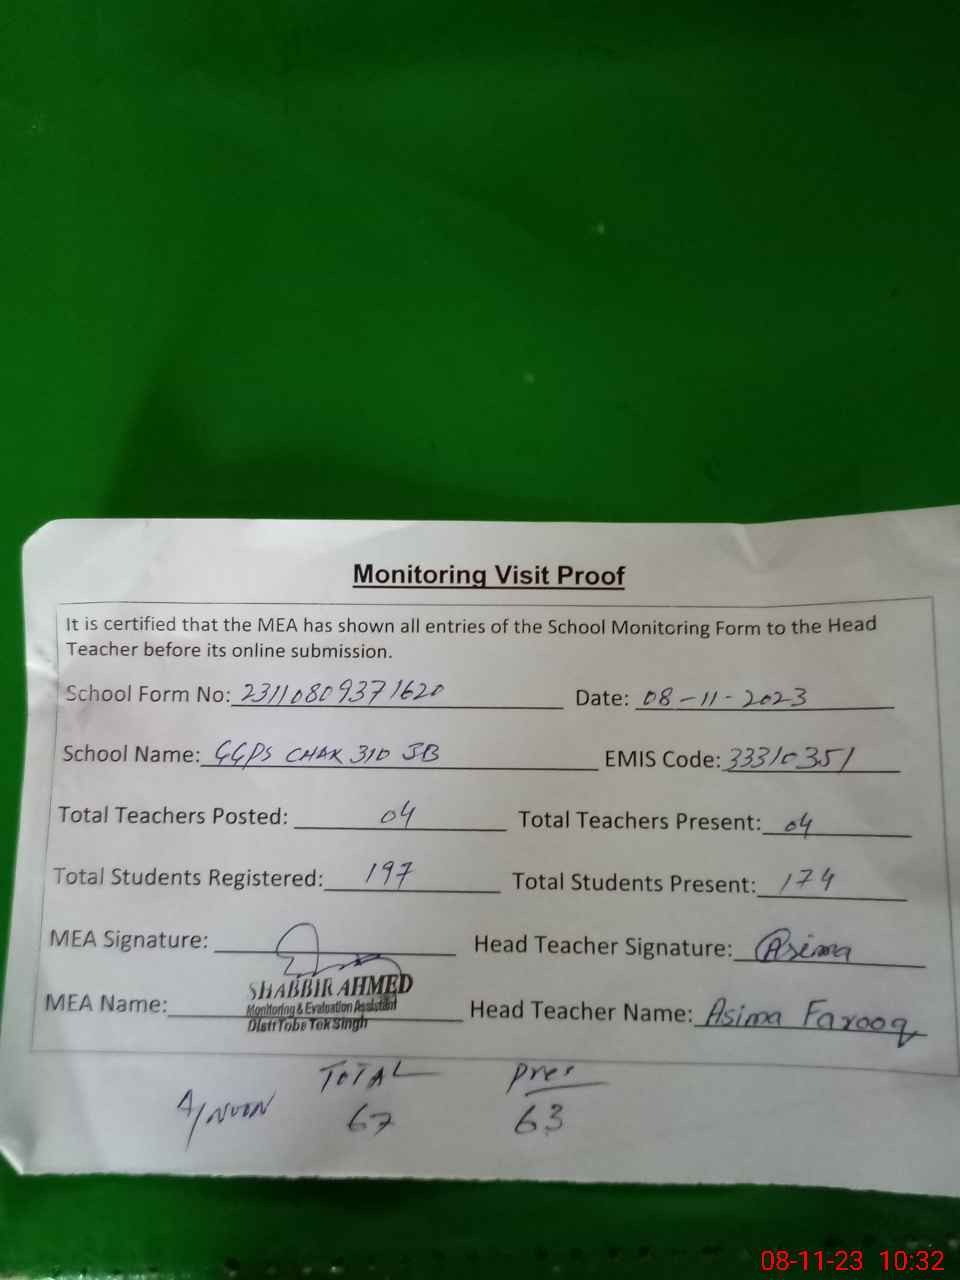 Monitoring Visit Proof
It is certified that the MEA has shown all entries of the School Monitoring Form to the Head
Teacher before its online submission.
School Form No: 23110809371620 Date: 08-11-2023
School Name: GGPS CHAK 310 JB EMIS Code: 33310351
Total Teachers Posted: 04 Total Teachers Present: 04
Total Students Registered: 197 Total Students Present: 174
MEA Signature: Head Teacher Signature: Asima
SHABBIR AHMED
MEA Name: Monitoring & Evaluation Assistant Head Teacher Name: Asima Farooq
Distt Toba Tek Singh
TOTAL Pres
A/NOON 67 63
08-11-23 10:32